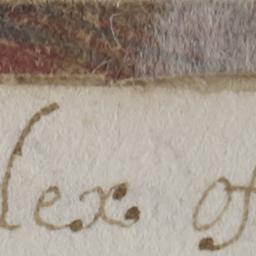 lex of